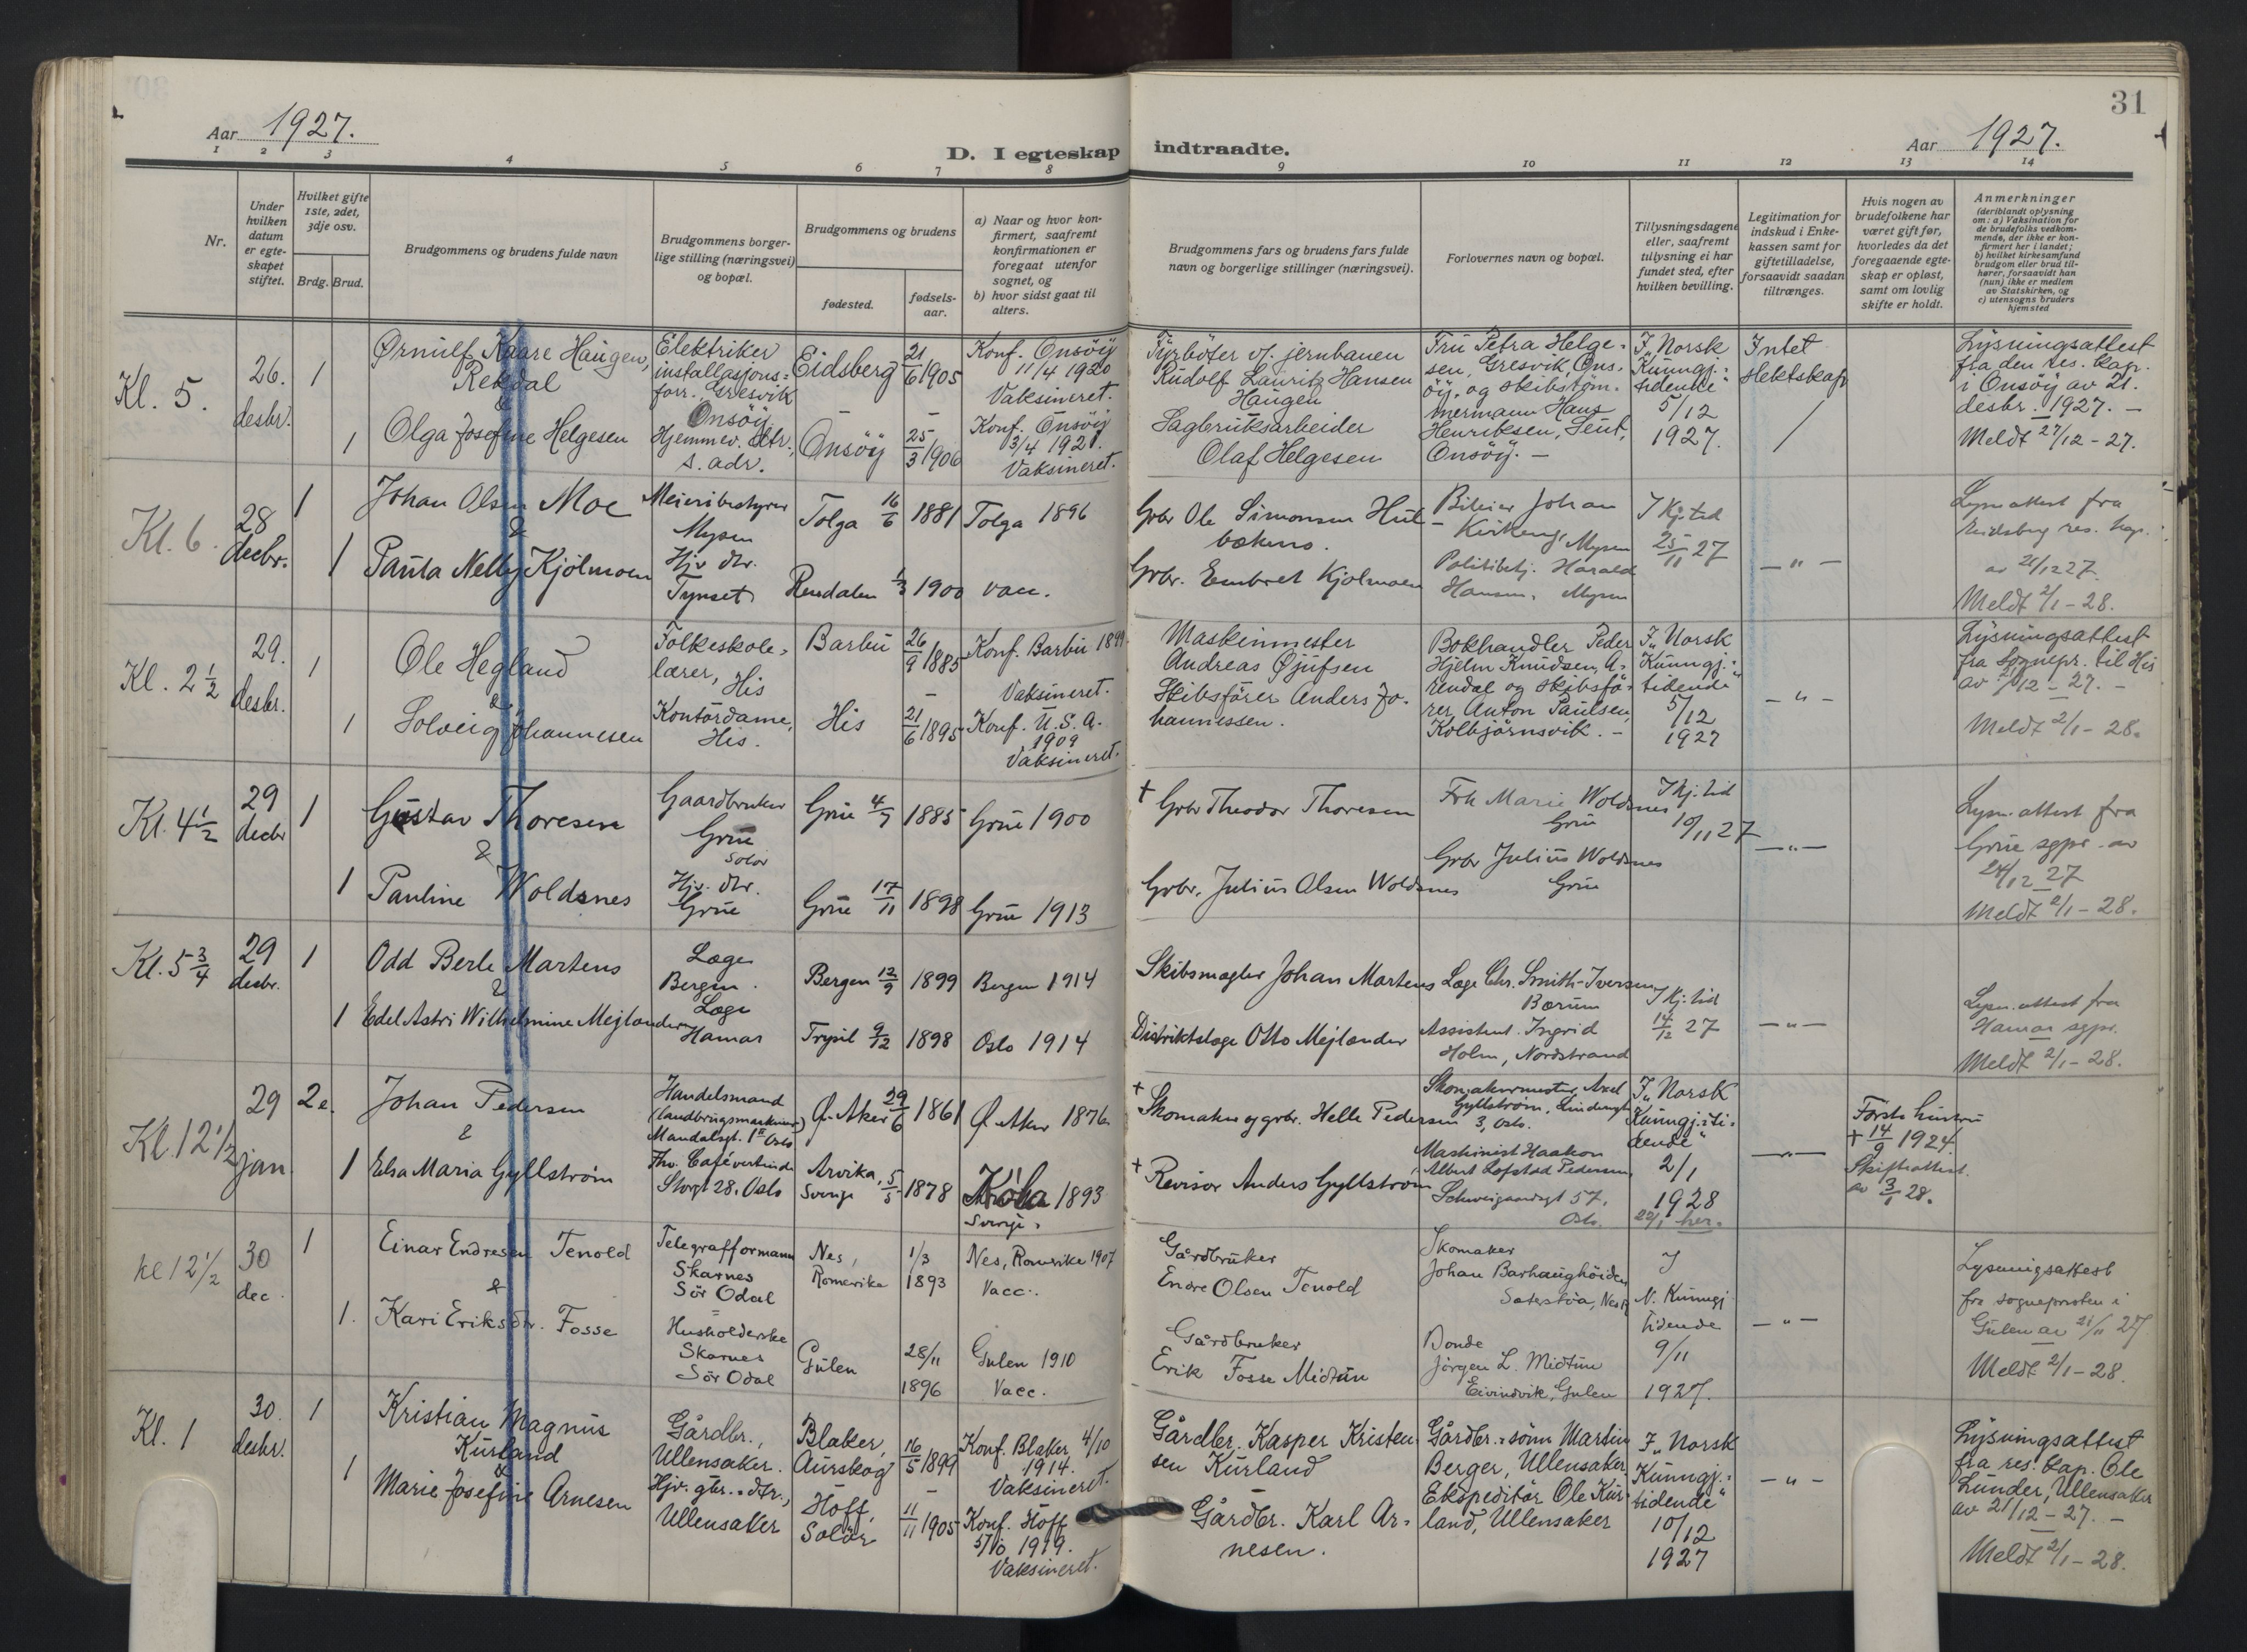 31
Aar 1927.
D. I egteskap indtraadte.
Aar 1927.
1 2 3 4 5 6 7 8 9 10 11 12 13 14
Nr.
Under hvilken datum er egteskapet stiftet.
Hvilket gifte 1ste, 2det, 3dje osv.
Brdg. Brud.
Brudgommens og brudens fulde navn
Brudgommens borgerlige stilling (næringsvei) og bopæl.
Brudgommens og brudens
fødested.
fødselsaar.
a) Naar og hvor konfirmert, saafremt konfirmationen er foregaat utenfor sognet, og
b) hvor sidst gaat til alters.
Brudgommens fars og brudens fars fulde navn og borgerlige stillinger (næringsvei).
Forlovernes navn og bopæl.
Tillysningsdagene eller, saafremt tillysning ei har fundet sted, efter hvilken bevilling.
Legitimation for indskud i Enkekassen samt for giftetilladelse, forsaavidt saadan tiltrænges.
Hvis nogen av brudefolkene har været gift før, hvorledes da det foregaaende egteskap er opløst, samt om lovlig skifte er holdt.
Anmerkninger
(deriblandt oplysning om: a) Vaksination for de brudefolks vedkommende, der ikke er konfirmert her i landet; b) hvilket kirkesamfund brudgom eller brud tilhører, forsaavidt han (hun) ikke er medlem av Statskirken, og c) utensogns bruders hjemsted
Kl. 5.
26. desbr.
1
Ørnulf Kaare Haugen,
Rekdal
&
1
Olga Josefine Helgesen
Elektriker
installasjons=
forr., Gresvik
Onsöy
Hjemmev. dtr.,
s. adr.
Eidsberg 21/6 1905
Onsöy 25/3 1906
Konf. Onsöy
11/4 1920
Vaksineret.
Konf. Onsöy
3/4 1921.
Vaksineret.
Fyrböter v/. jernbanen
Rudolf Lauritz Hansen
Haugen
Sagbruksarbeider
Olaf Helgesen
Fru Petra Helge=
sen, Gresvik, Ons=
öy, og skibstöm=
mermann Hans
Henriksen, Lent,
Onsöy. —
I „Norsk
Kunngj.=
tidende"
5/12
1927.
Intet
slektskap
Lysningsattest
fra den res. kap.
i Onsöy av 21.
desbr. 1927. —
Meldt 27/12 - 27.
Kl. 6.
28 decbr.
1
Johan Olsen Moe
&
1
Paula Nelly Kjölmoen
Meieribestyrer
Mysen
Hjv dtr.
Tynset
Tolga 16/6 1881
Rendalen 1/3 1900
Tolga 1896
vacc.
Grbr Ole Simonsen Hul-
bækmo.
Grbr. Embret Kjölmoen
Bileier Johan
Kirkeng, Mysen
Politibetj. Harald
Hansen, Mysen
I Kj. tid
25/11 27
— " —
Lysn attest fra
Eidsberg res. kap.
av 21/12 27.
Meldt 2/1 - 28.
Kl. 2 1/2
29. desbr.
1
Ole Hegland
&
1
Solveig Johannesen
Folkeskole=
lærer,
His
Kontordame,
His.
Barbu 26/9 1885
His 21/6 1895
Konf. Barbu 1899
Vaksineret.
Konf. U.S.A.
1909
Vaksineret.
Maskinmester
Andreas Øjufsen
Skibsförer Anders Jo=
hannessen.
Bokhandler Peder
Hjelm Knudsen, A=
rendal og skibsfö=
rer Anton Paulsen,
Kolbjörnsvik. —
I „Norsk
Kunngj.=
tidende"
5/12
1927
— " —
Lysningsattest
fra sognepr. til His
av /12 - 27. —
Meldt 2/1 - 28.
Kl. 4 1/2
29 decbr
1
Gustav Thoresen
&
1
Pauline Woldsnes
Gaardbruker
Grue
Solör
Hjv. dtr.
Grue
Grue 4/7 1885
Grue 17/11 1898
Grue 1900
Grue 1913
† Grbr Theodor Thoresen
Grbr. Julius Olsen Woldsnes
Frk Marie Woldsnes
Grue
Grbr Julius Woldsnes
Grue
I Kj. tid
10/11 27
— " —
Lysn. attest fra
Grue sgpr. av
24/12 27
Meldt 2/1 - 28.
Kl. 5 3/4
29 desbr.
1
Odd Berle Martens
&
1
Edel Astri Wilhelmine Mejlænder
Læge
Bergen.
Læge
Hamar
Bergen 12/9 1899
Trysil 9/12 1898
Bergen 1914
Oslo 1914
Skibsmægler Johan Martens
Distriktslæge Otto Mejlænder
Læge Chr. Smith-Iversen
Bærum
Assistent Ingrid
Holm, Nordstrand
I Kj. tid
14/12 27
— " —
Lysn. attest fra
Hamar sgpr.
Meldt 2/1 - 28.
Kl. 12 1/2
29 jan.
2e.
Johan Pedersen
&
1
Elsa Maria Gyllström
Handelsmand
(landbrugsmaskiner)
Mandalsgt. 1 II Oslo
Fhv. Cafévertinde
Storgt 28. Oslo
Ø. Aker 29/6 1861
Arvika, Sverige 5/5 1878
Ø. Aker 1876
Köla 1893
Sverige.
† Skomaker og grbr. Helle Pedersen
† Revisor Anders Gyllström
Skomakermester Axel
Gyllström, Lindengt
3, Oslo.
Maskinist Haakon
Albert Lofstad Pedersen,
Schweigaardsgt 57,
Oslo.
I „Norsk
Kunngj.=ti=
dende"
2/1
1928
22/1 her.
— " —
Förste hustru
† 14/9 1924.
Skifteattest.
av 3/1 28.
kl 12 1/2
30 dec.
1
Einar Endresen Tenold
&
1.
Kari Eriksdtr. Fosse
Telegrafformann
Skarnes
Sör Odal
=
Husholderske
Skarnes
Sör Odal
Nes, Romerike 1/3 1893
Gulen 28/11 1896
Nes, Romerike 1907
Vacc.
Gulen 1910
Vacc.
Gårdbruker
Endre Olsen Tenold
Gårdbruker
Erik Fosse Midtun
Skomaker
Johan Barhaughöiden
Sæterstöa, Nes
Bonde
Jörgen L. Midtun
Eivindvik, Gulen
I
N. Kunngj
tidende
9/11
1927.
— " —
Lysningsattest
fra sognepresten i
Gulen av 21/11 27
Meldt 2/1 - 28.
Kl. 1
30. desbr.
1
Kristian Magnus
Kurland
&
1
Marie Josefine Arnesen
Gårdbr.,
Ullensaker.
Hjv. gbr.=dtr.,
Ullensaker
Blaker,
Aurskog 16/5 1899
Hoff,
Solör 11/11 1905
Konf. Blaker 4/10
1914.
Vaksineret.
Konf. Hoff
5/10 1919.
Vaksineret.
Gårdbr. Kasper Kristen=
sen Kurland
Gårdbr. Karl Ar=
nesen.
Gårdbr.=sönn Martin
Berger, Ullensaker
Ekspeditör Ole Kur=
land, Ullensaker
I „Norsk
Kunngj.=
tidende"
10/12
1927
— " —
Lysningsattest
fra res. kap. Ole
Lunder, Ullensaker
av 21/12 - 27. —
Meldt 2/1 - 28.